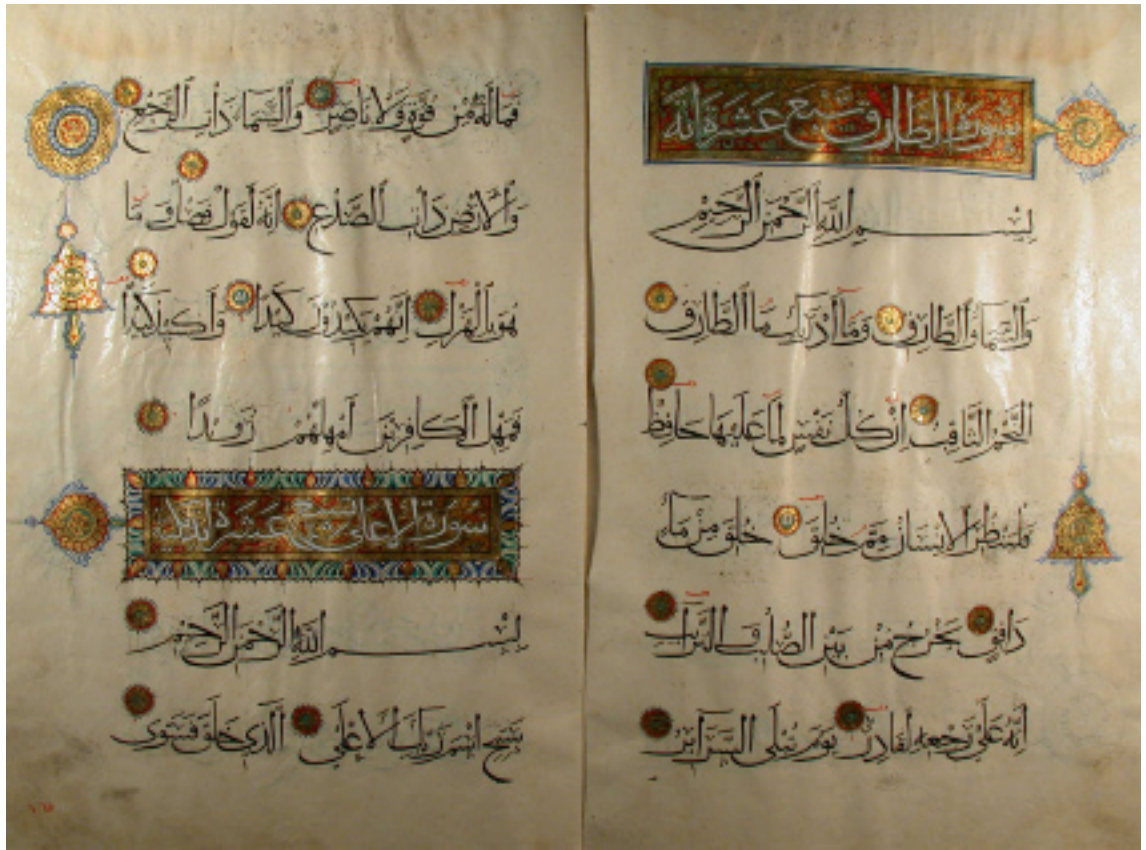 سورة الطارق سبع عشرة آية
بسم الله الرحمن الرحيم
والسماء والطارق وما أدريك ما الطارق
النجم الثاقب إن كل نفس لما عليها حافظ
فلينظر الإنسان مم خلق خلق من ماء
دافق يخرج من بين الصلب والترائب
إنه على رجعه لقادر يوم تبلى السرائر
فما له من قوة ولا ناصر والسماء ذات الرجع
والأرض ذات الصدع إنه لقول فصل وما
هو بالهزل إنهم يكيدون كيدا وأكيد كيدا
فمهل الكافرين أمهلهم رويدا
سورة الأعلى تسع عشرة آية
بسم الله الرحمن الرحيم
سبح اسم ربك الأعلى الذي خلق فسوى